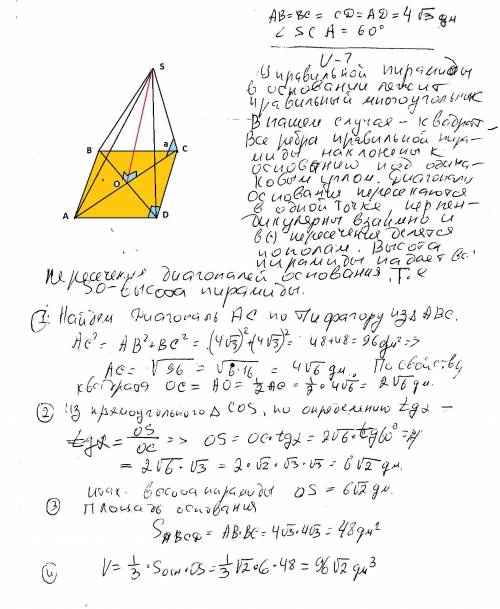 AB=BC= CD=AD=4√3 дм
∠SCA=60°
V-?
У правильной пирамиды
в основании лежит
правильный многоугольник
В нашем случае - квадрат
Все ребра правильной пира-
миды наклонены к
основанию под одина-
ковым углом. Диагонали
основания пересекаются
в одной точке, перпен-
дикулярны взаимно и
в(.) пересечения делятся
пополам. Высота
пирамиды падает в(.)
пересечения диагоналей основания. Т.е
SO-высота пирамиды.
S
B
a
C
O
A
D
1. Найдем диагональ AC по Пифагору из ΔABC.
AC²= AB²+BC²= (4√3)²+(4√3)²= 48+48=96дм²=>
AC=√96 =√6·16 = 4√6 дм. По свойству
квадрата OC=AO=½AC=½·4√6=2√6 дм.
2 Из прямоугольного Δ COS, по определению tgα-
tgα=OS/OC => OS=OC·tgα=2√6·tg60°=
=2√6·√3 = 2·√2·√3·√3=6√2 дм.
итак. высота пирамиды OS=6√2 дм.
3 Площадь основания
SABCD= AB·BC=4√3·4√3=48дм²
4 V=1/3·Sосн·OS=1/3√2·6·48=96√2 дм³